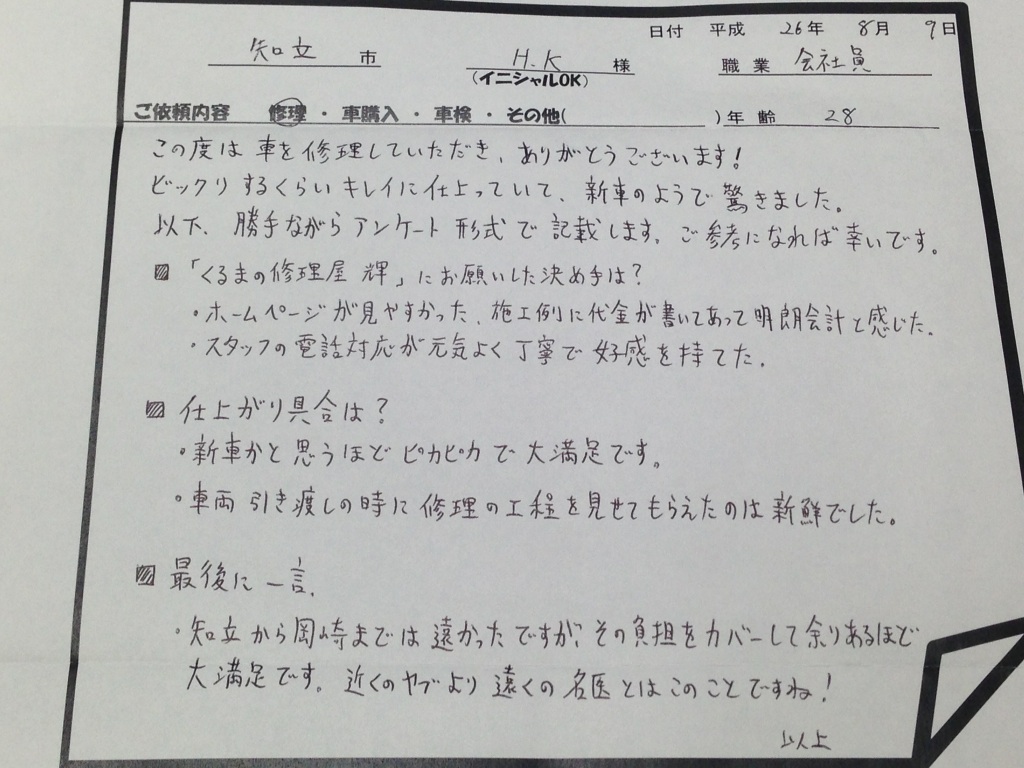 日付 平成 26年 8月 9日
知立 市 H.K 様 職業 会社員
(イニシャルOK)
ご依頼内容 修理・車購入・車検・その他( )年齢 28
この度は車を修理していただき、ありがとうございます!
ビックリするくらいキレイに仕上っていて、新車のようで驚きました。
以下、勝手ながらアンケート形式で記載します。ご参考になれば幸いです。
▨「くるまの修理屋 輝」にお願いした決め手は?
・ホームページが見やすかった、施工例に代金が書いてあって明朗会計と感じた。
・スタッフの電話対応が元気よく丁寧で好感を持てた。
▨ 仕上がり具合は?
・新車かと思うほどピカピカで大満足です。
・車両引き渡しの時に修理の工程を見せてもらえたのは新鮮でした。
▨ 最後に一言。
・知立から岡崎までは遠かったですが、その負担をカバーして余りあるほど
大満足です。近くのヤブより遠くの名医とはこのことですね!
以上